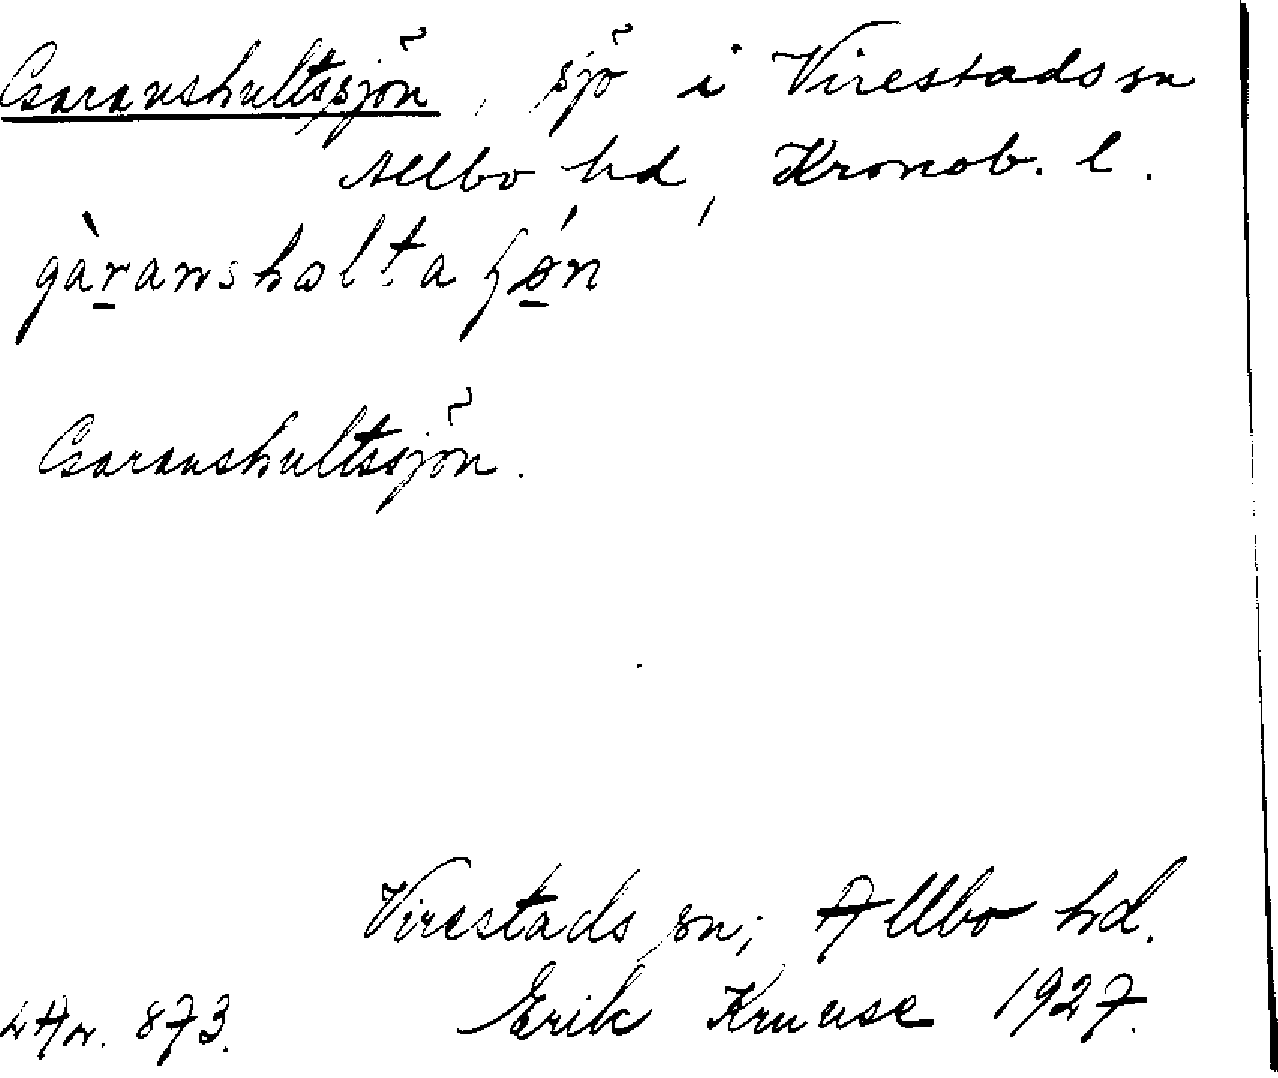 Garanshultssjön, sjö i Virestads sn
Allbo hd, Kronob. l.
gàranshólta ɧǿn
Garanshultssjön.
Virestads sn; Allbo hd.
Erik Kruuse 1927.
873.